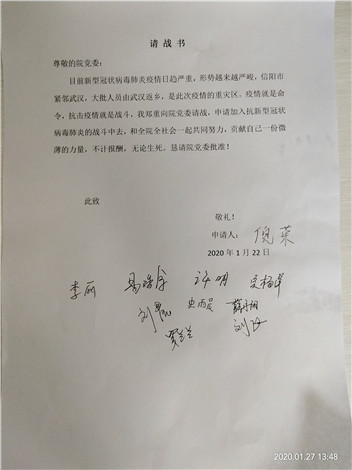 请 战 书
尊敬的院党委:
目前新型冠状病毒肺炎疫情日趋严重，形势越来越严峻，信阳市
紧邻武汉，大批人员由武汉返乡，是此次疫情的重灾区。疫情就是命
令，抗击疫情就是战斗，我郑重向院党委请战，申请加入抗新型冠状
病毒肺炎的战斗中去，和全院全社会一起共同努力，贡献自己一份微
薄的力量，不计报酬，无论生死。恳请院党委批准！
此致
敬礼！
申请人：倪荣
2020 年 1 月 22 日
李丽 许明
刘
刘
2020.01.27 13:48